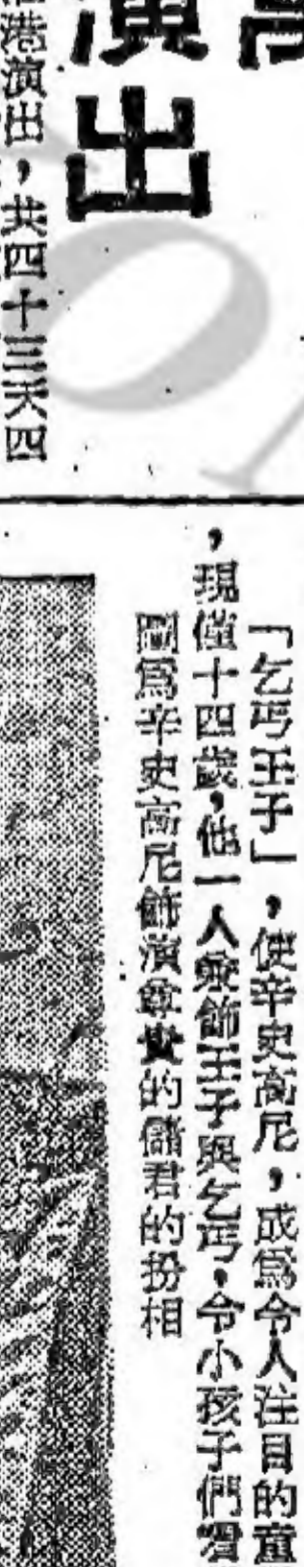 演出
港演出，共四十三天四
「乞丐王子」，使辛史高尼，成爲令人注目的童
，現僅十四歲，他一人兼飾王子與乞丐，令小孩子們
圖爲辛史高尼飾演尊貴的儲君的扮相